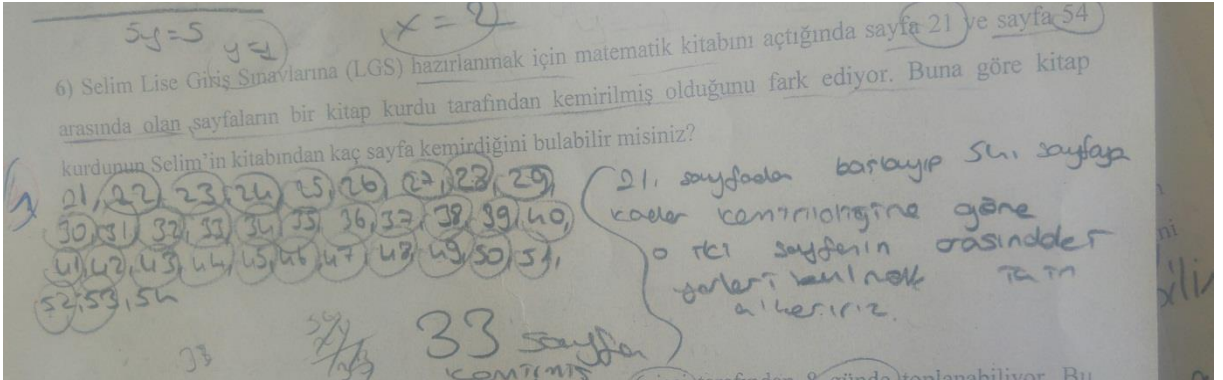 5y=5
y=1
x=2
6) Selim Lise Giriş Sınavlarına (LGS) hazırlanmak için matematik kitabını açtığında sayfa 21 ve sayfa 54
arasında olan sayfaların bir kitap kurdu tarafından kemirilmiş olduğunu fark ediyor. Buna göre kitap
kurdunun Selim'in kitabından kaç sayfa kemirdiğini bulabilir misiniz?
21, 22, 23, 24, 25, 26, 27, 28, 29,
30, 31, 32, 33, 34, 35, 36, 37, 38, 39, 40,
41, 42, 43, 44, 45, 46, 47, 48, 49, 50, 51,
52, 53, 54
33
33 sayfa
kemirmiş
21. sayfadan başlayıp 54. sayfaya
kadar kemirildiğine göre
o iki sayfanın arasındaki
için
8 günde toplanabiliyor. Bu